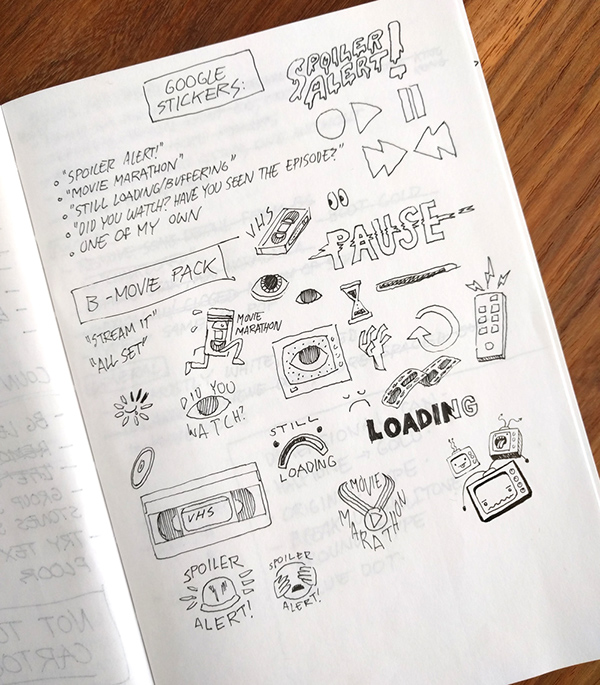 GOOGLE
STICKERS:
SPOILER
ALERT!
"SPOILER ALERT!"
"MOVIE MARATHON"
"STILL LOADING/BUFFERING"
"DID YOU WATCH? HAVE YOU SEEN THE EPISODE?"
ONE OF MY OWN
VHS
PAUSE
B-MOVIE PACK
"STREAM IT"
"ALL SET"
MOVIE
MARATHON
DID YOU
WATCH?
STILL
LOADING
LOADING
VHS
MOVIE
MARATHON
SPOILER
ALERT!
SPOILER
ALERT!